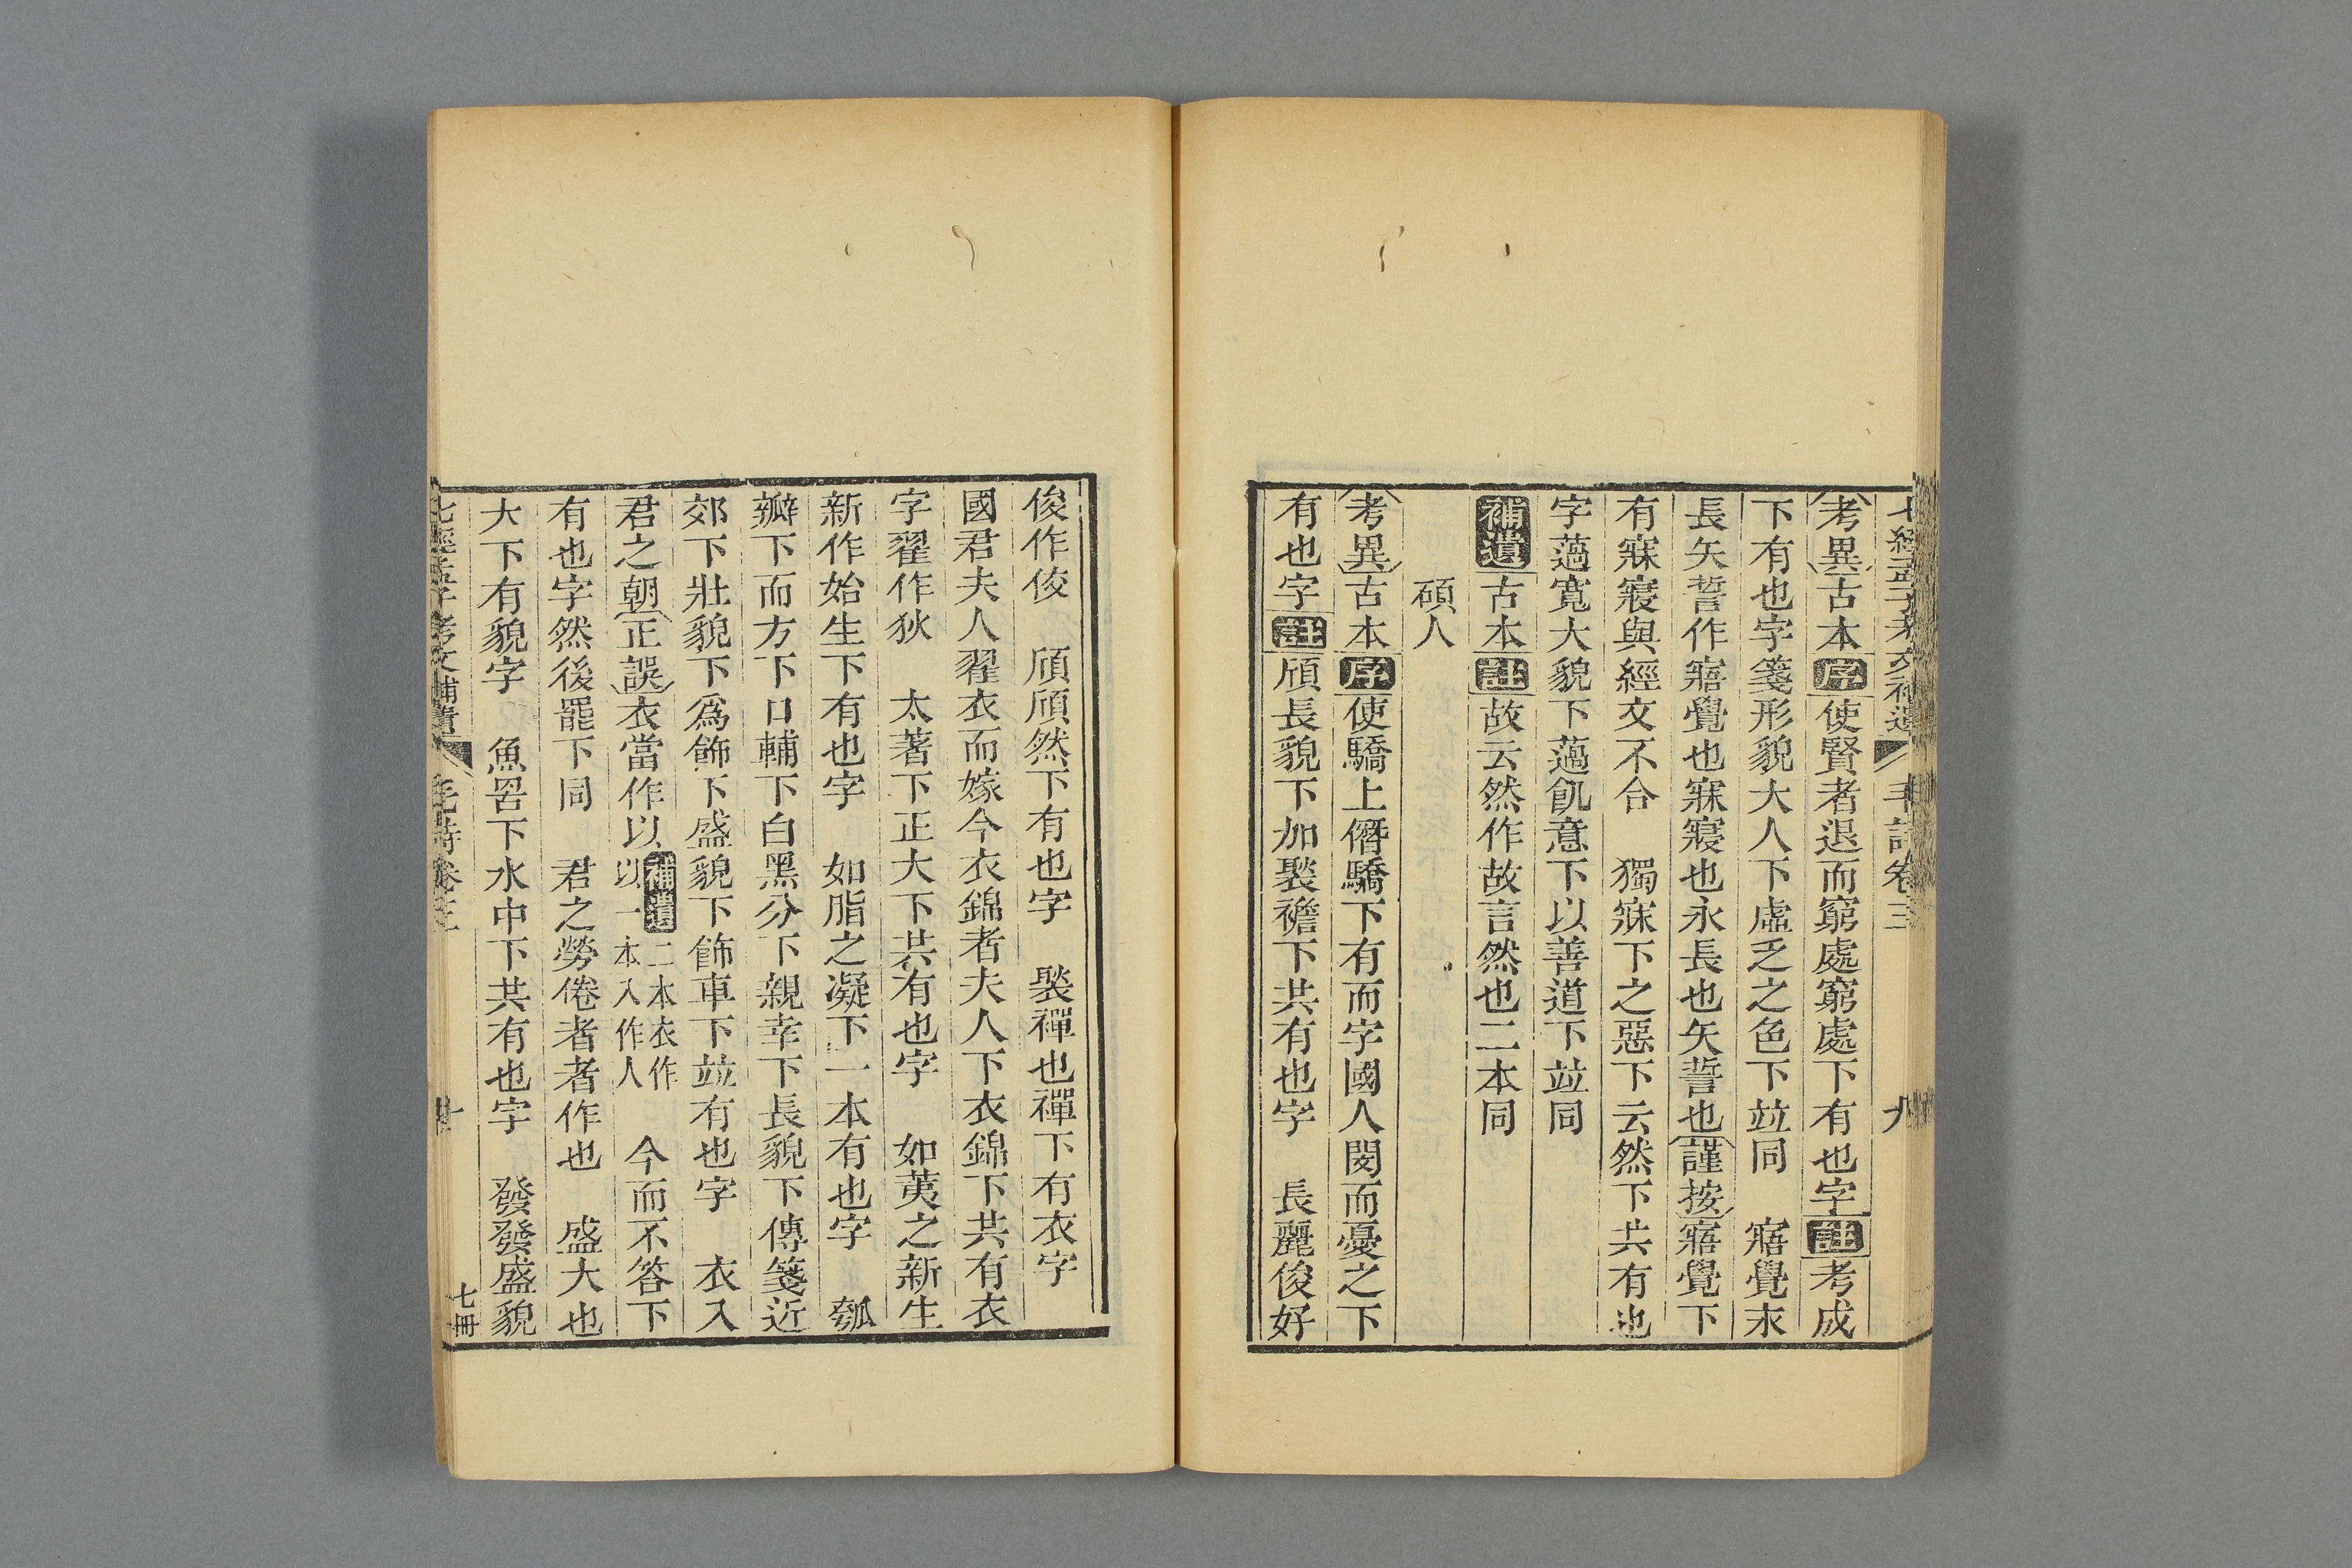 七經孟子考文補遺 毛詩卷三 九
考異古本序使賢者退而窮處窮處下有也字註考成
下有也字箋形貌大人下虛乏之色下竝同 寤覺永
長矢誓作寤覺也寐寢也永長也矢誓也謹按寤覺下
有寐寢與經文不合 獨寐下之惡下云然下共有也
字薖寬大貌下薖飢意下以善道下竝同
補遺古本註故云然作故言然也二本同
碩人
考異古本序使驕上僭驕下有而字國人閔而憂之下
有也字註頎長貌下加褧襜下共有也字 長麗俊好
俊作佼 頎頎然下有也字 褧襌也襌下有衣字
國君夫人翟衣而嫁今衣錦者夫人下衣錦下共有衣
字翟作狄 太著下正大下共有也字 如荑之新生
新作始生下有也字 如脂之凝下一本有也字 瓠
瓣下而方下口輔下白黑分下親幸下長貌下傳箋近
郊下壯貌下為飾下盛貌下飾車下竝有也字 衣入
君之朝正誤衣當作以補遺二本衣作以一本入作人 今而不答下
有也字然後罷下同 君之勞倦者者作也 盛大也
大下有貌字 魚罟下水中下共有也字 發發盛貌
七經孟子考文補遺 毛詩卷三 十 七冊